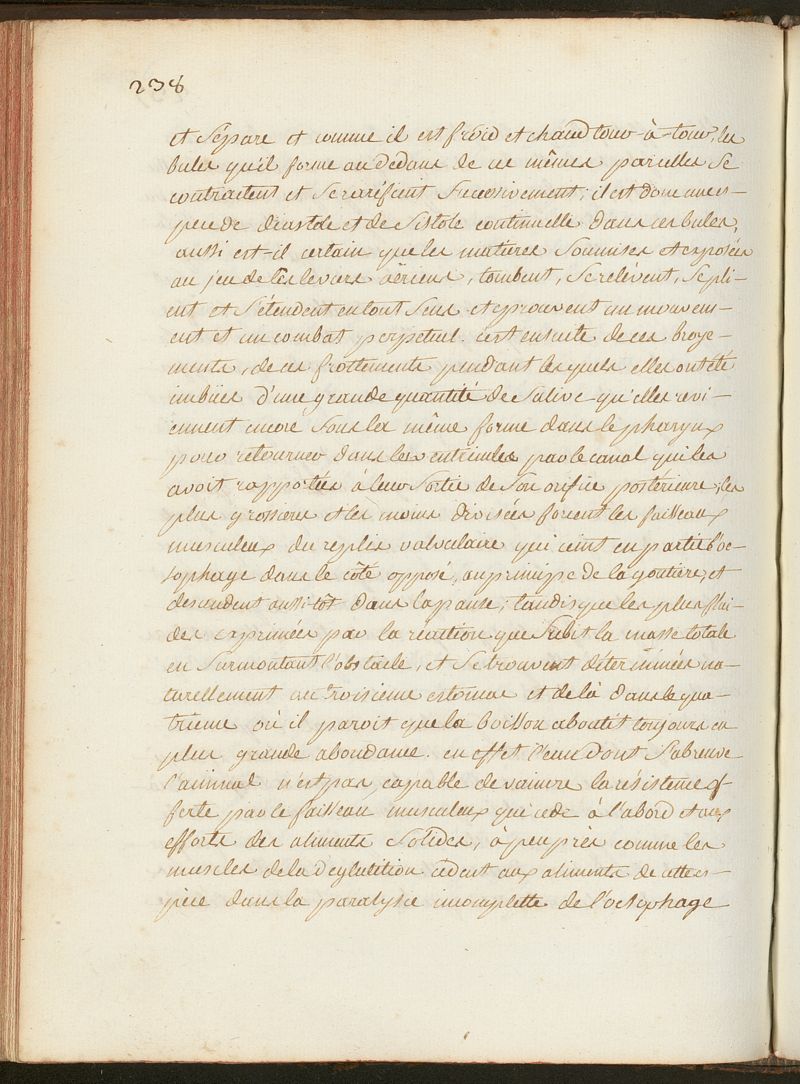 238
et sépare et comme il est froid et chaud tour-à-tour, les
bules qu'il forme au dedans de ces mêmes parcelles se
contractent et se raréfient successivement; il est donc une es-
pece de diastole et de sistole continuelle dans ces bules,
aussi est-il certain que les matieres soumises et exposées
au jeu de ces leviers aëriens, tombent, se relévent, se pli-
ent et s'étendent en tout sens et eprouvent un mouvem-
ent et un combat perpetuel. c'est ensuite de ces broye-
ments, de ces frottements pendant lesquels elles ont été
imbües d'une grande quantité de salive qu'elles revi-
ennent encore sous la même forme dans le pharynx
pour retourner dans les ventricules par le canal qui les
avoit rapportées à leur sortie de son orifice postérieur, les
plus grossieres et les moins divisées forcent les faisseaux
musculeux du replis valvulaire qui ceint en partie l'oe-
sophage dans le côté opposé, au principe de la goutiere, et
descendent aussi-tôt dans la panse, tandis que les plus flui-
des exprimées par la réaction que subit la masse totale
en surmontant l'obstacle, et se trouvent déterminées na-
turellement au troisieme estomac et de là dans le qua-
trieme où il paroit que la boisson aboutit toujours en
plus grande abondance. en effet l'eau dont s'abreuve
l'animal n'est pas capable de vaincre la résistence of-
ferte par le faisseau musculeux qui cede à l'abord et aux
efforts des aliments solides, à peu près comme les
muscles de la déglutition cédent aux aliments de cette es-
pece dans la paralysie incomplette de l'oesophage